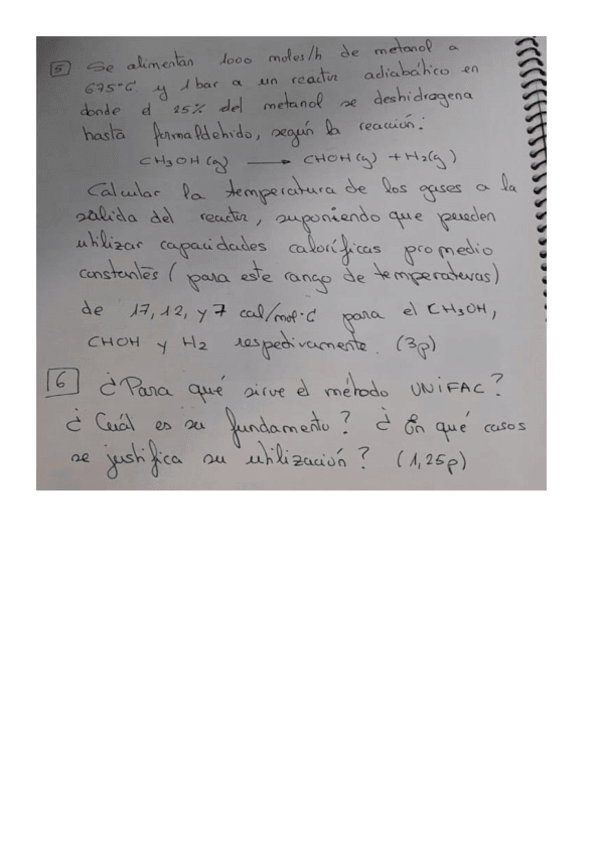 5 Se alimentan 1000 moles/h de metanol a
675°C y 1 bar a un reactor adiabático en
donde el 25% del metanol se deshidrogena
hasta formaldehido, según la reacción:
CH3OH(g) → CHOH(g) + H2(g)
Calcular la temperatura de los gases a la
salida del reactor, suponiendo que pueden
utilizar capacidades caloríficas promedio
constantes (para este rango de temperaturas)
de 17, 12, y 7 cal/mol·C para el CH3OH,
CHOH y H2 respectivamente. (3p)
6 ¿Para qué sirve el método UNIFAC?
¿Cuál es su fundamento? ¿En qué casos
se justifica su utilización? (1,25p)